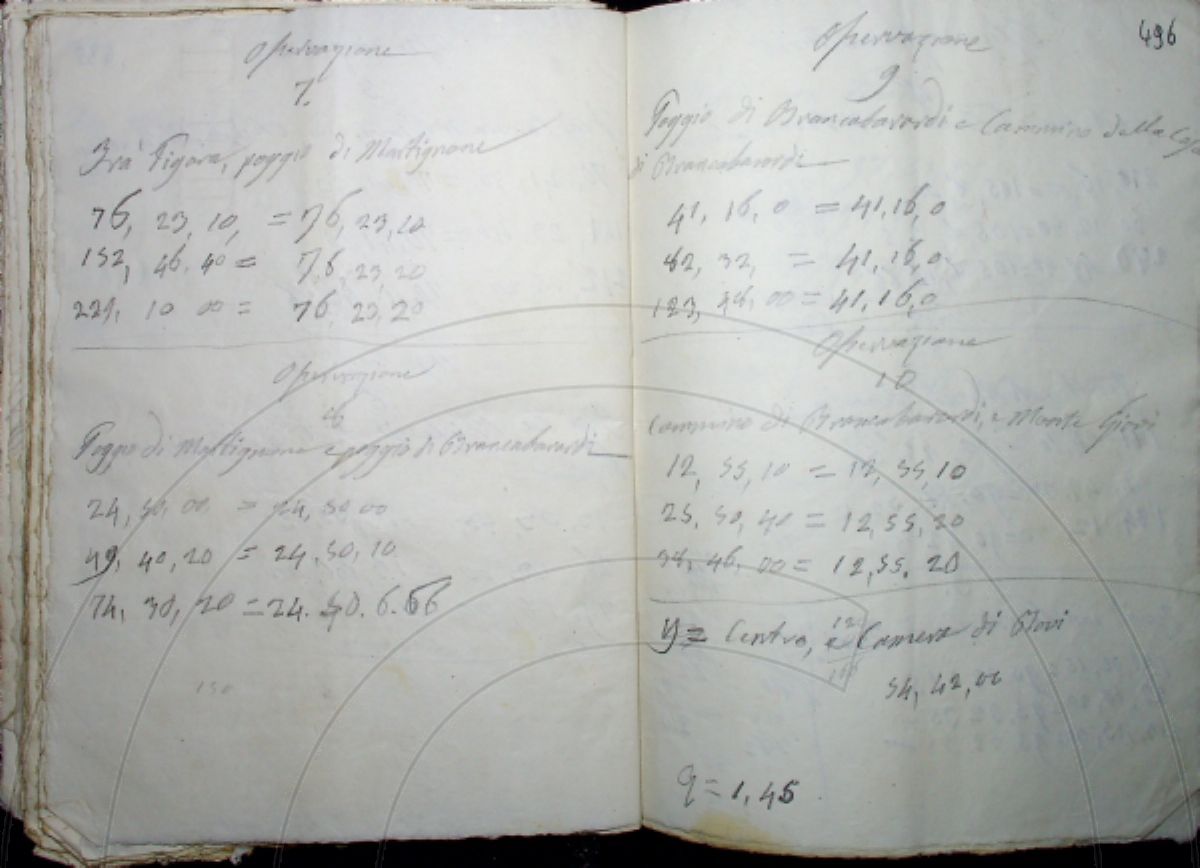 Osservazione
7.
Frà Figara, poggio di Martignone
76, 23, 10, = 76, 23, 10
152, 46, 40 = 76, 23, 20
229, 10 00 = 76, 23, 20
Osservazione
8
Poggio di Martignone e poggio di Brancabarardi
24, 50, 00 = 24, 50 00
49, 40, 20 = 24. 50, 10
74, 30, 20 = 24. 50. 6. 66
150
496
Osservazione
9
Poggio di Brancabarardi e Cammino della Casa
di Brancabarardi
41, 16, 0 = 41, 16, 0
82, 32, = 41, 16, 0
123, 48, 00 = 41, 16, 0
Osservazione
10
Cammino di Brancabarardi, e Monte Giovi
12, 55, 10 = 12, 55, 10
25, 50, 40 = 12, 55, 20
38, 46, 00 = 12, 55, 20
y = Centro, e Camera di
54, 42, 00
= 1, 45